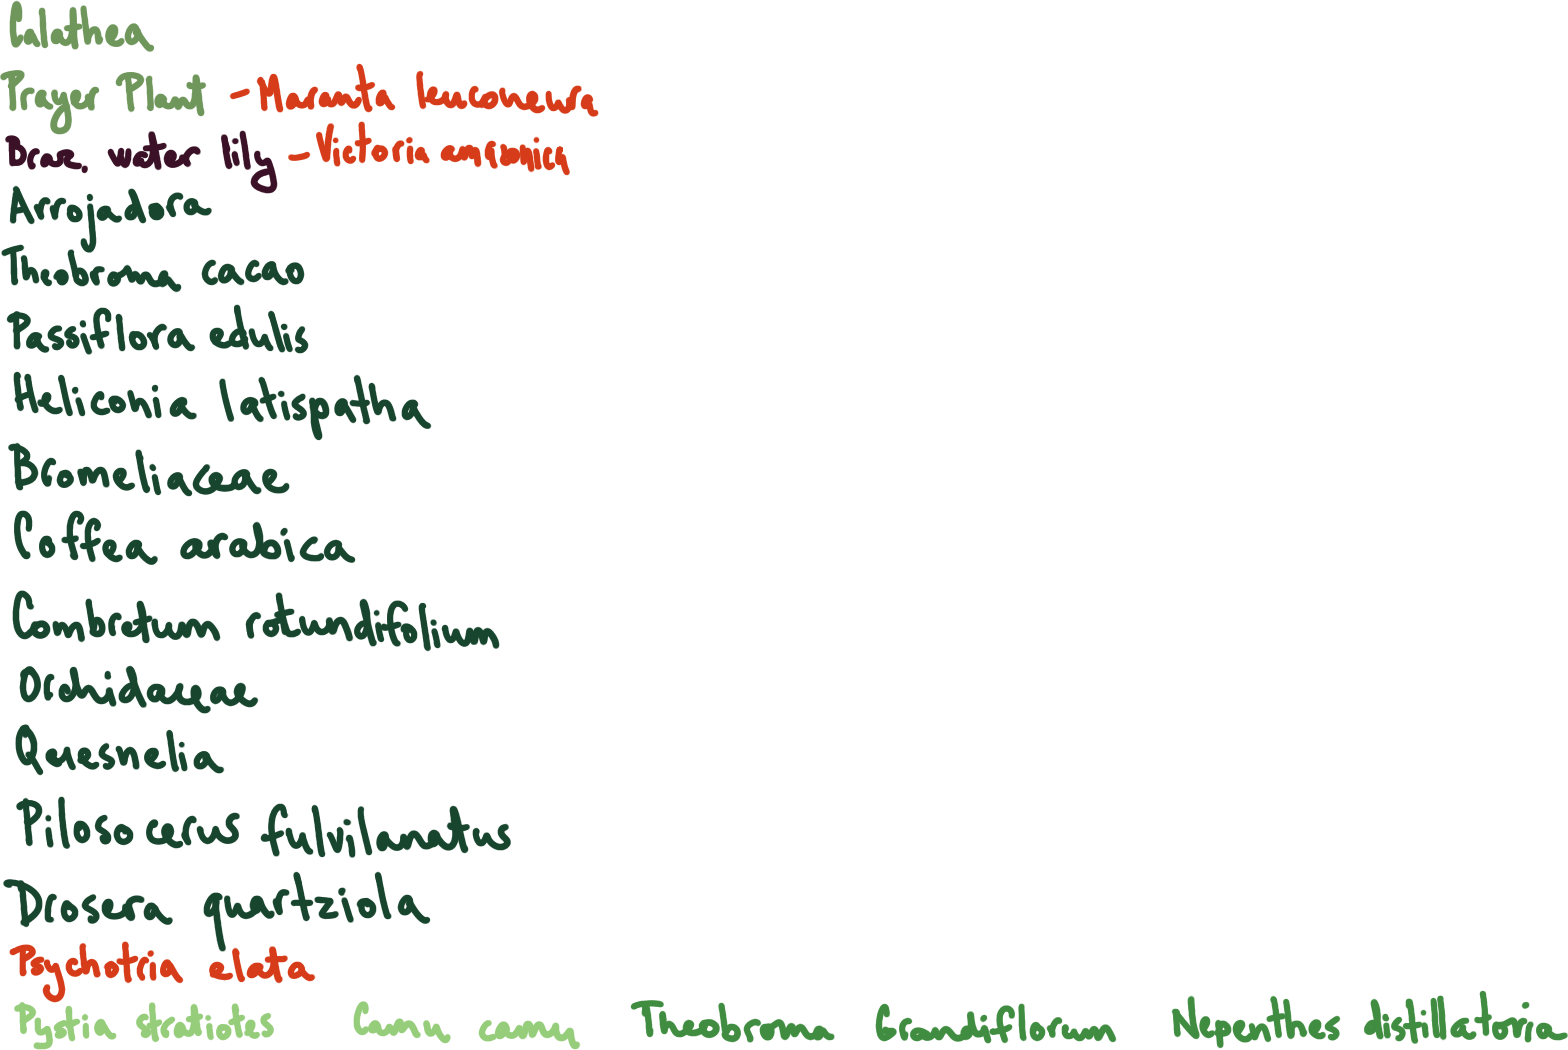 Calathea
Prayer Plant - Maranta leuconeura
Braz. water lily - Victoria amazonica
Arrojadora
Theobroma cacao
Passiflora edulis
Heliconia latispatha
Bromeliaceae
Coffea arabica
Combretum rotundifolium
Orchidaceae
Quesnelia
Pilosocerus fulvilanatus
Drosera quartziola
Psychotria elata
Pystia stratiotes Camu camu Theobroma Grandiflorum Nepenthes distillatoria